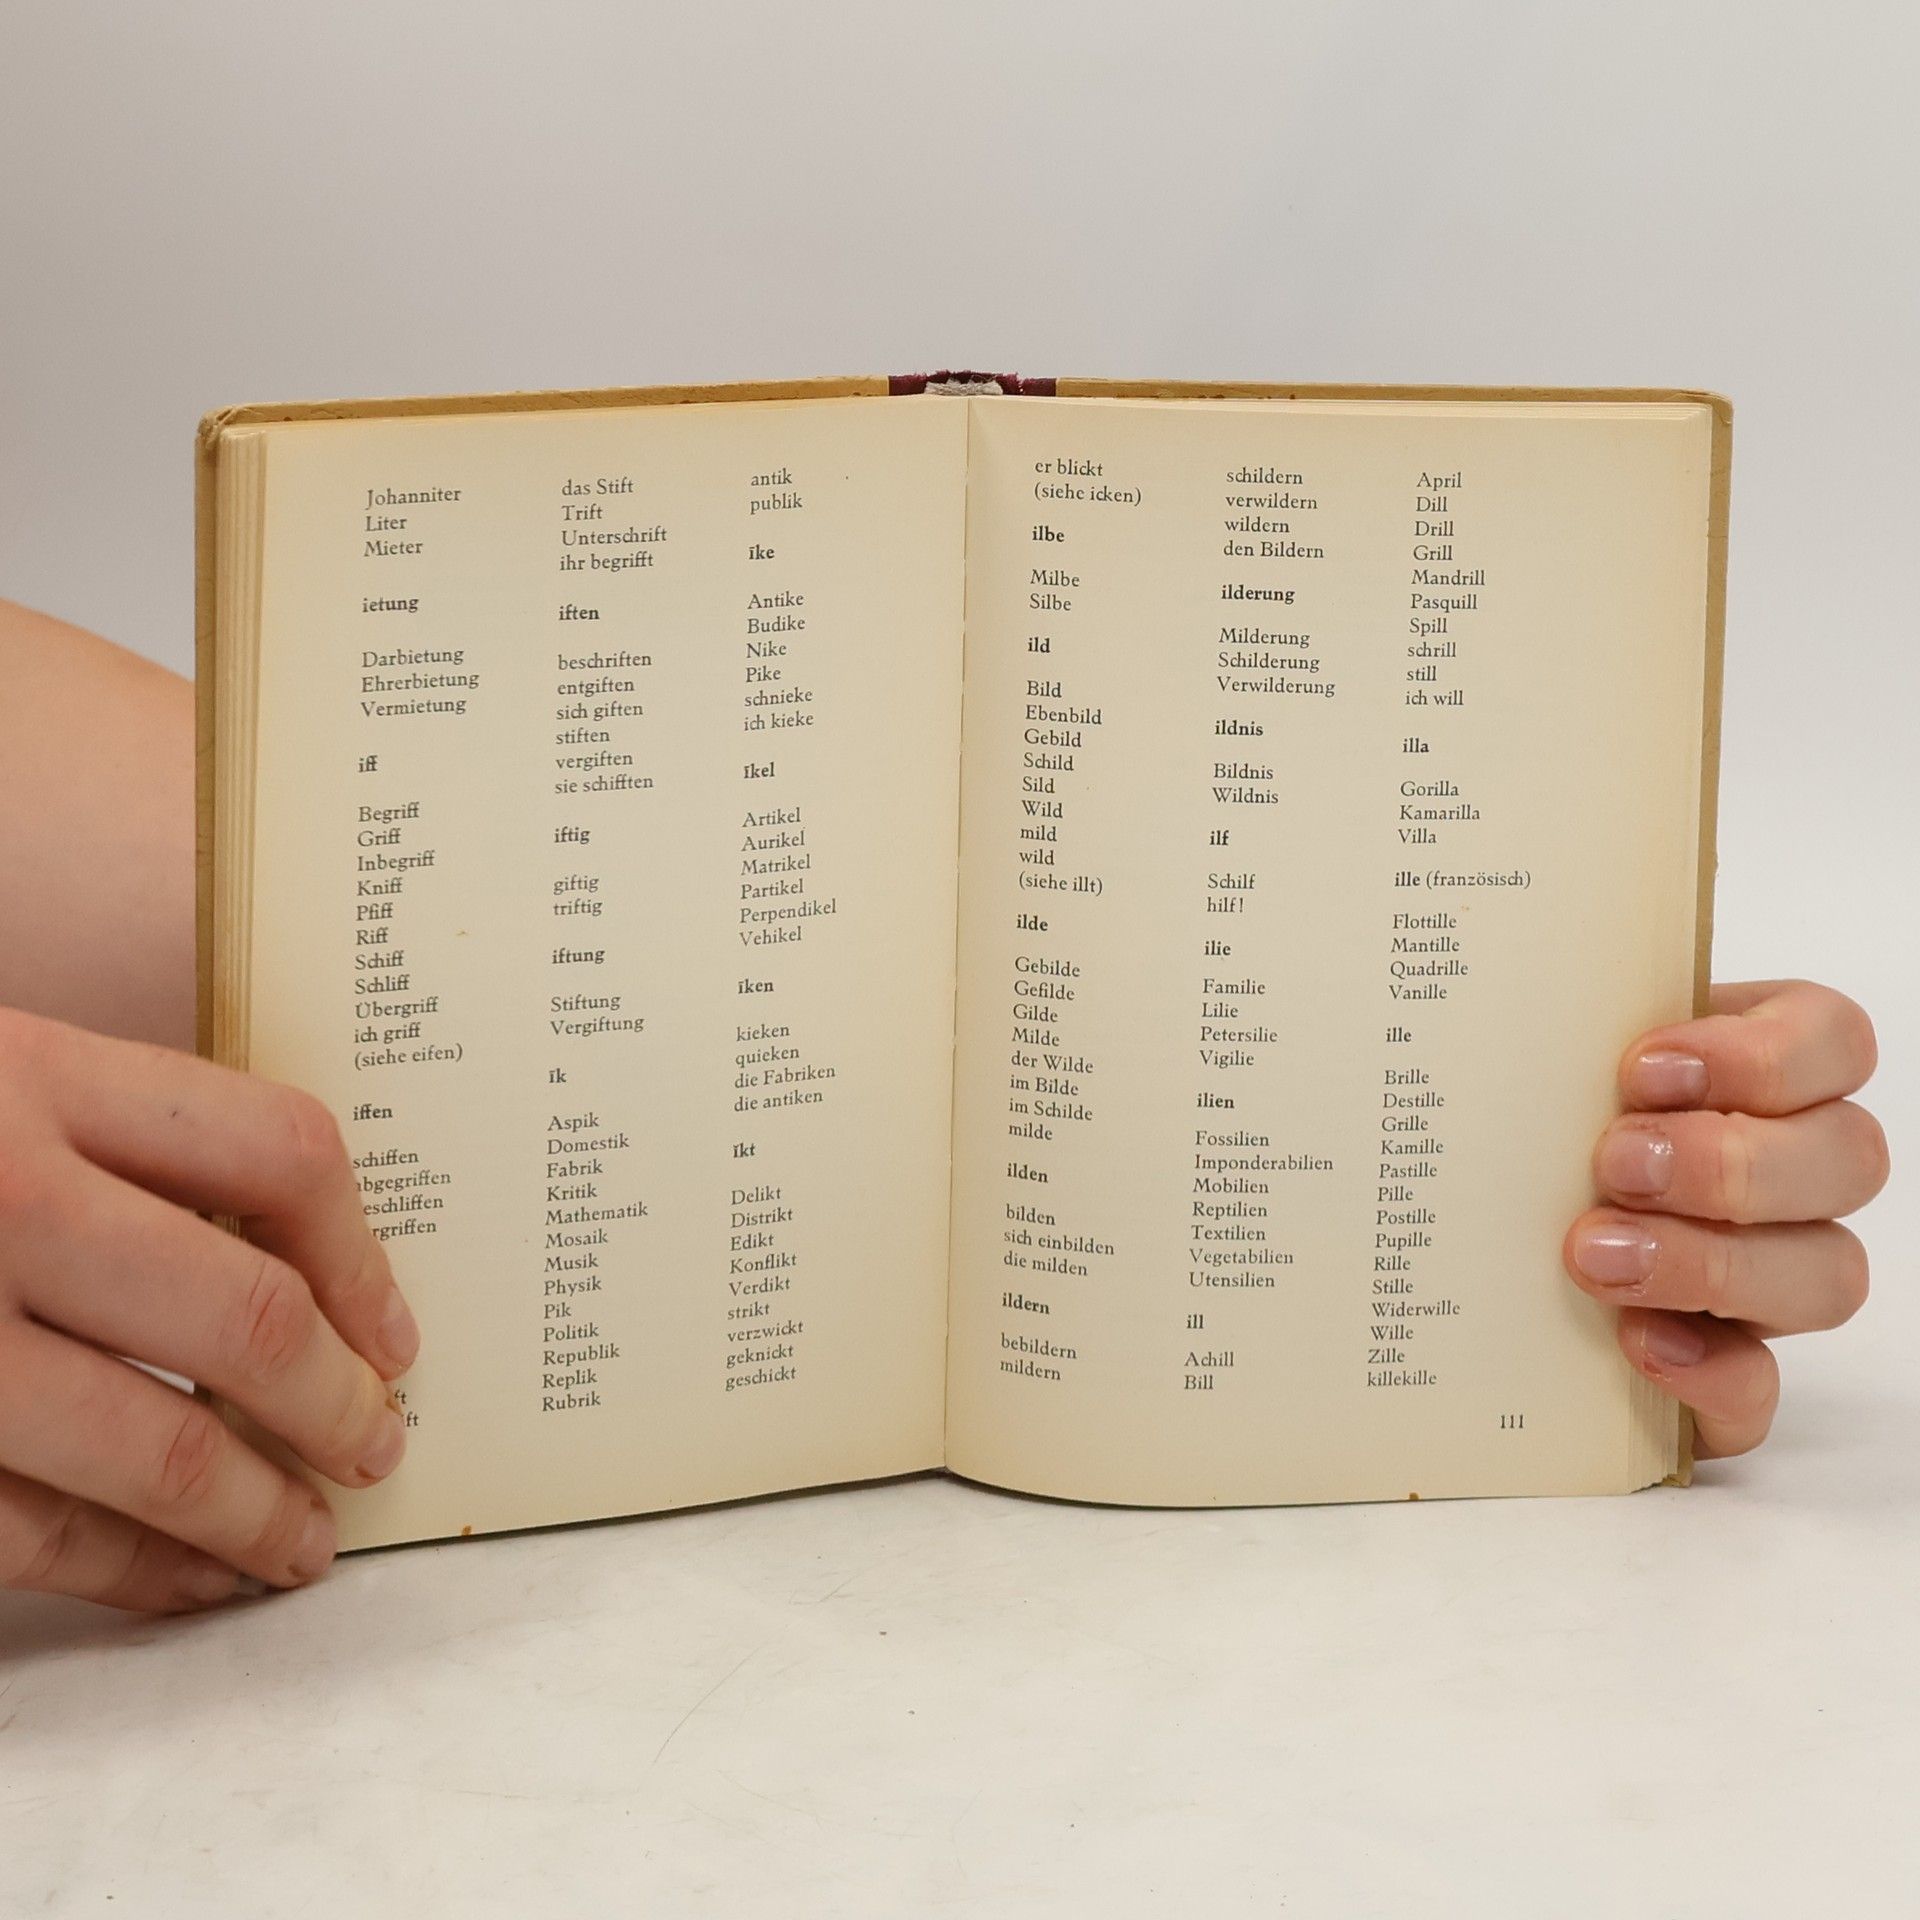 Johanniter
Liter
Mieter
ietung
Darbietung
Ehrerbietung
Vermietung
iff
Begriff
Griff
Inbegriff
Kniff
Pfiff
Riff
Schiff
Schliff
Übergriff
ich griff
(siehe eifen)
iffen
schiffen
das Stift
Trift
Unterschrift
ihr begrifft
iften
beschriften
entgiften
sich giften
stiften
vergiften
sie schifften
iftig
giftig
triftig
iftung
Stiftung
Vergiftung
īk
Aspik
Domestik
Fabrik
Kritik
Mathematik
Mosaik
Musik
Physik
Pik
Politik
Republik
Replik
Rubrik
antik
publik
īke
Antike
Budike
Nike
Pike
schnieke
ich kieke
īkel
Artikel
Aurikel
Matrikel
Partikel
Perpendikel
Vehikel
īken
kieken
quieken
die Fabriken
die antiken
ĭkt
Delikt
Distrikt
Edikt
Konflikt
Verdikt
strikt
verzwickt
geknickt
geschickt
er blickt
(siehe icken)
ilbe
Milbe
Silbe
ild
Bild
Ebenbild
Gebild
Schild
Sild
Wild
mild
wild
(siehe illt)
ilde
Gebilde
Gefilde
Gilde
Milde
der Wilde
im Bilde
im Schilde
milde
ilden
bilden
sich einbilden
die milden
ildern
bebildern
mildern
schildern
verwildern
wildern
den Bildern
ilderung
Milderung
Schilderung
Verwilderung
ildnis
Bildnis
Wildnis
ilf
Schilf
hilf!
ilie
Familie
Lilie
Petersilie
Vigilie
ilien
Fossilien
Imponderabilien
Mobilien
Reptilien
Textilien
Vegetabilien
Utensilien
ill
Achill
Bill
April
Dill
Drill
Grill
Mandrill
Pasquill
Spill
schrill
still
ich will
illa
Gorilla
Kamarilla
Villa
ille (französisch)
Flottille
Mantille
Quadrille
Vanille
ille
Brille
Destille
Grille
Kamille
Pastille
Pille
Postille
Pupille
Rille
Stille
Widerwille
Wille
Zille
killekille
111